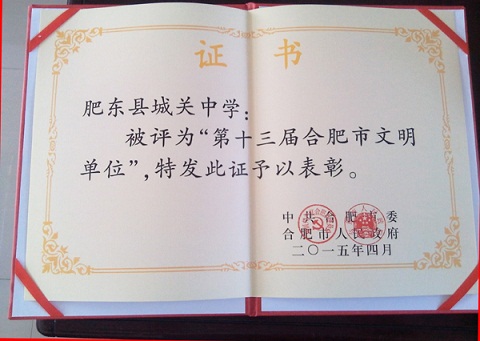 证 书
肥东县城关中学:
被评为“第十三届合肥市文明
单位”,特发此证予以表彰。
中共合肥市委
合肥市人民政府
二〇一五年四月